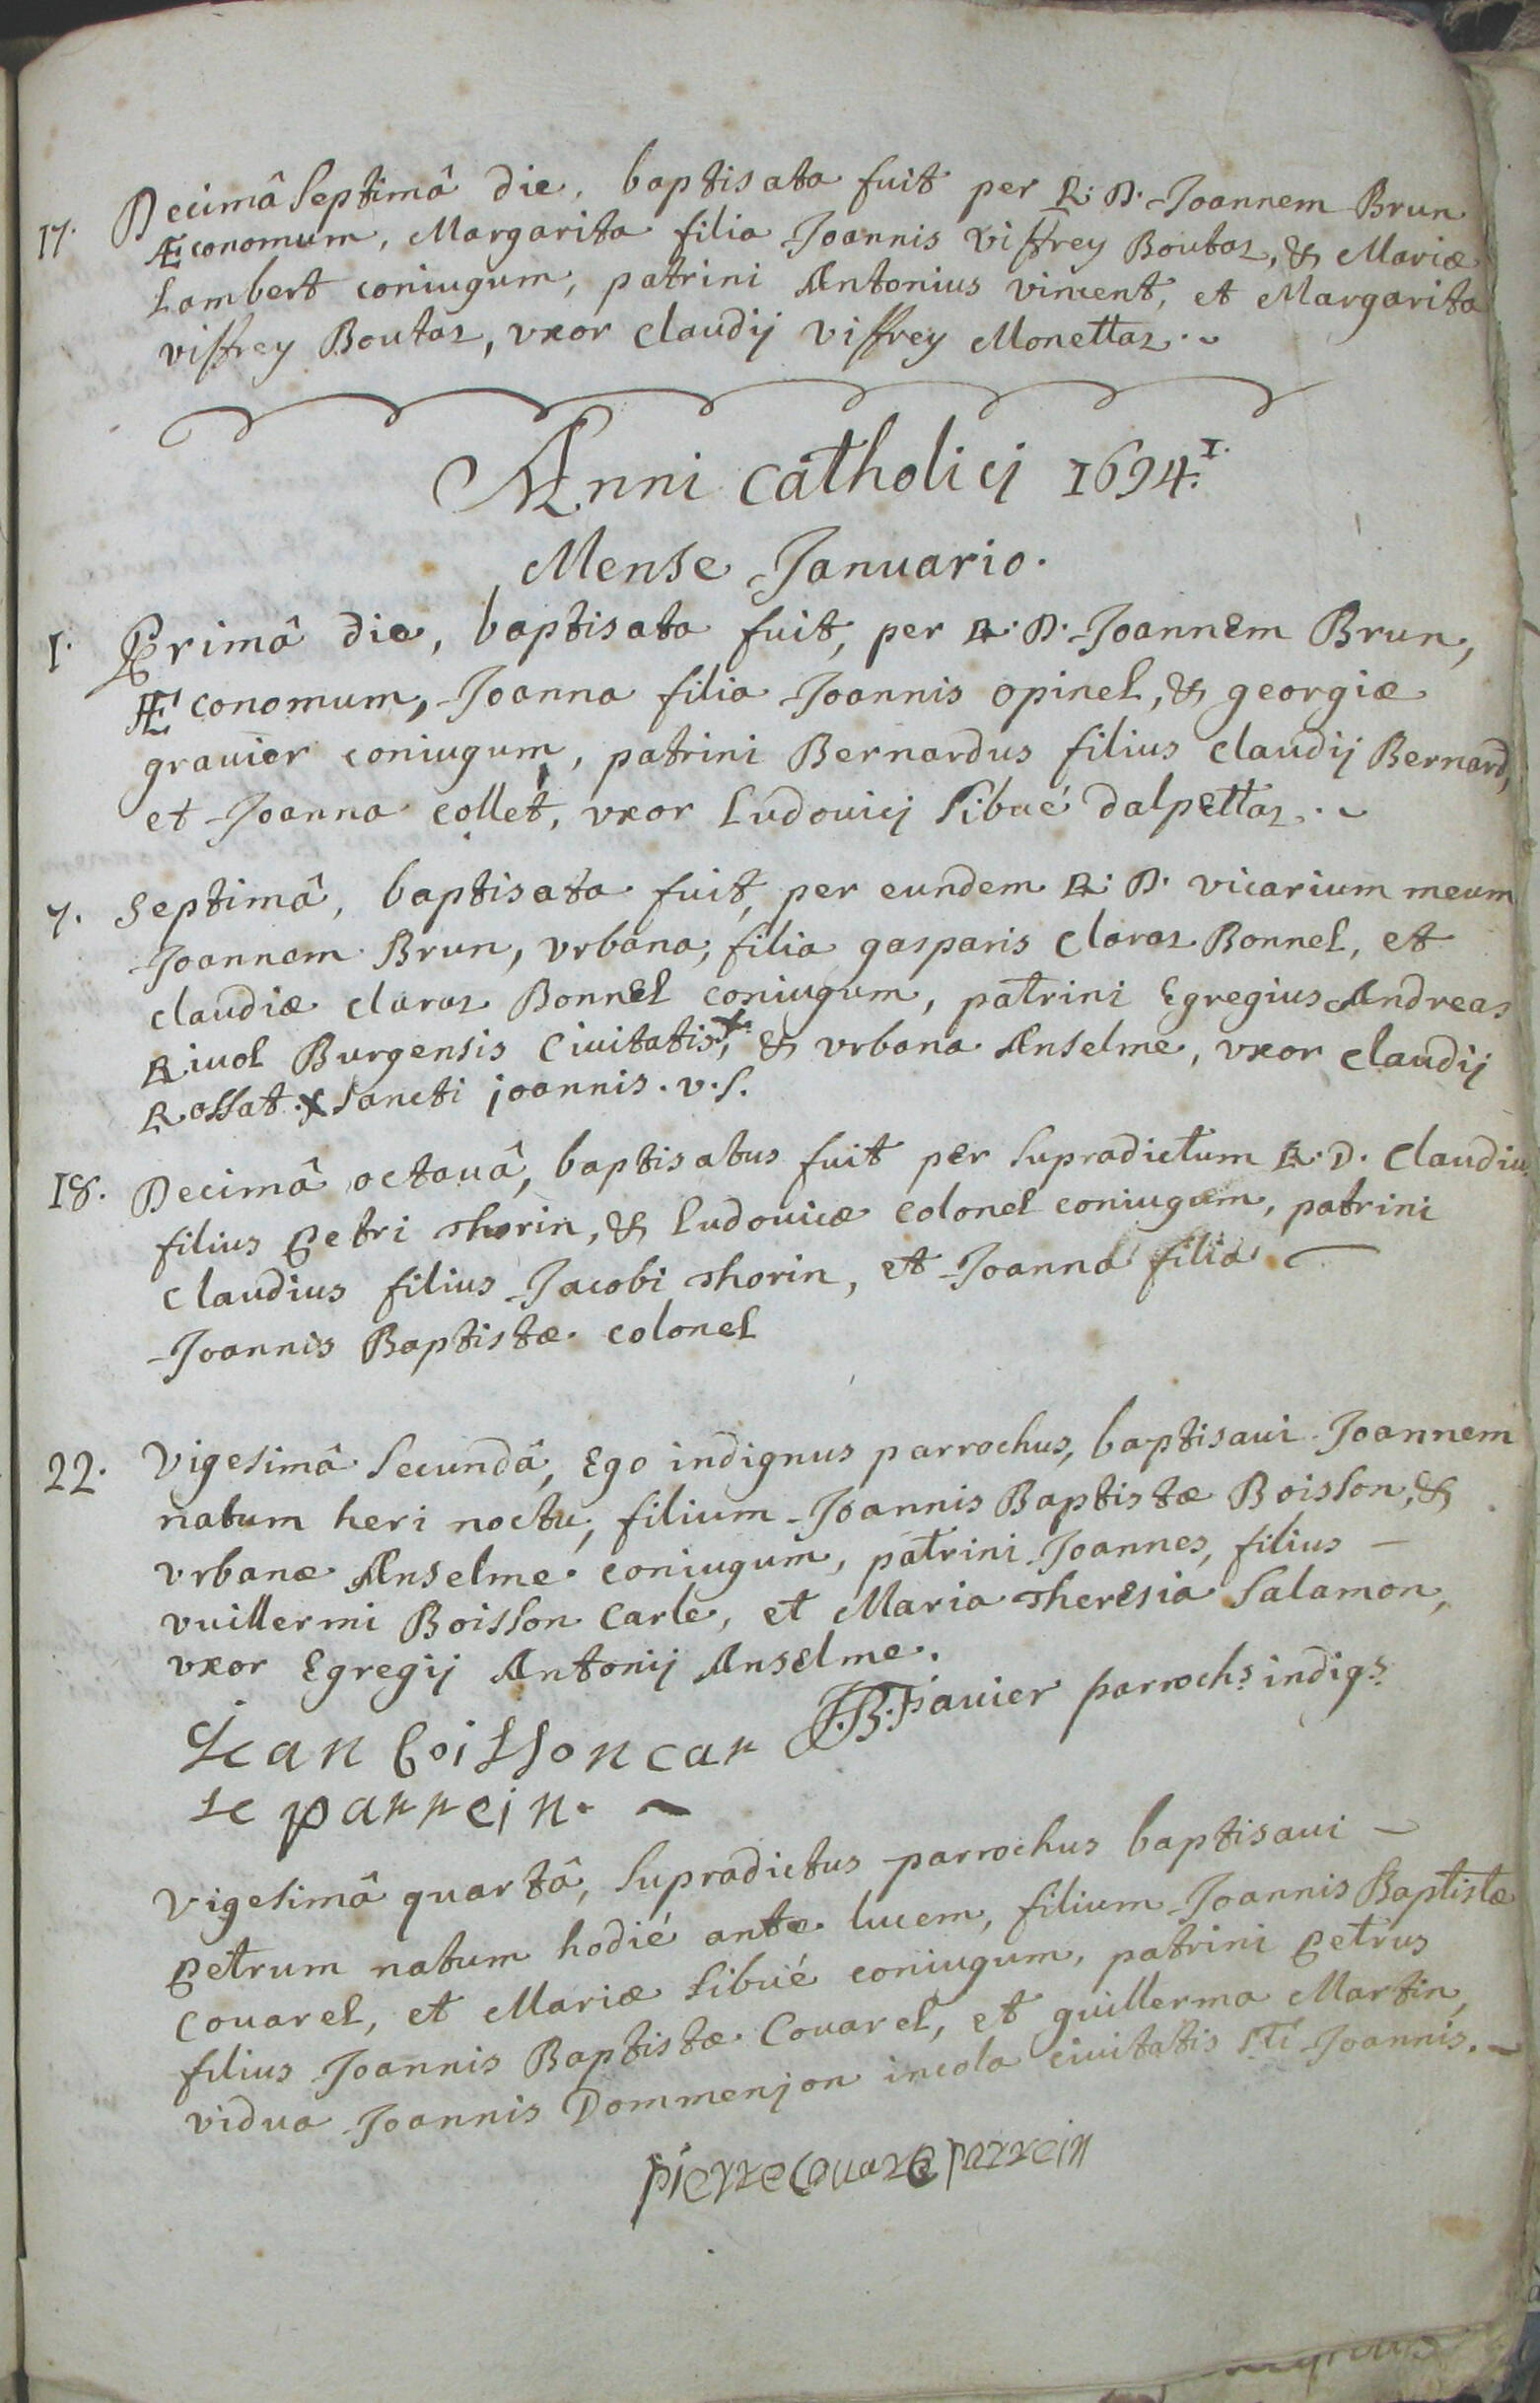 17. Decimâ Septimâ die, baptisata fuit per R. D. Joannem Brun
Æconomum, Margarita filia Joannis Viffrey Boutaz, & Mariæ
Lambert coniugum, patrini Antonius Vincent, et Margarita
viffrey Boutaz, vxor Claudij Viffrey Monettaz.
Anni Catholicj 1694.
Mense Januario.
1. Primâ die, baptisata fuit, per R. D. Joannem Brun,
Æconomum, Joanna filia Joannis opinel, & georgiæ
grauier coniugum, patrini Bernardus filius Claudij Bernard,
et Joanna collet, vxor Ludouicj Sibué dalpettaz.
7. Septimâ, baptisata fuit, per eundem R. D. vicarium meum
Joannem Brun, vrbana, filia gasparis Claraz Bonnel, et
claudiæ claraz Bonnel coniugum, patrini Egregius Andreas
Riuol Burgensis Ciuitatis,x & vrbana Anselme, vxor Claudij
Rossat. x Sancti joannis. v. s.
18. Decimâ octauâ, baptisatus fuit per supradictum R. D. Claudiu
filius Petri Thorin, & Ludouicæ Colonel coniugum, patrini
Claudius filius Jacobi Thorin, et Joanna filia
Joannis Baptistæ Colonel
22. Vigesimâ Secundâ, Ego indignus parrochus, baptisaui Joannem
natum heri noctu, filium Joannis Baptistæ Boisson, &
vrbanæ Anselme coniugum, patrini Joannes, filius
vuillermi Boisson Carle, et Maria Theresia Salamon,
vxor Egregij Antonij Anselme.
J. B. Fauier parrochs. indigs.
Jean boisson car
le parrein.
Vigesimâ quartâ, supradictus parrochus baptisaui
Petrum natum hodié ante lucem, filium Joannis Baptistæ
Couarel, et Mariæ Sibué coniugum, patrini Petrus
filius Joannis Baptistæ Couarel, et guillerma Martin,
vidua Joannis Dommenjon incola ciuitatis Sti Joannis.
pierre Couarel parrein